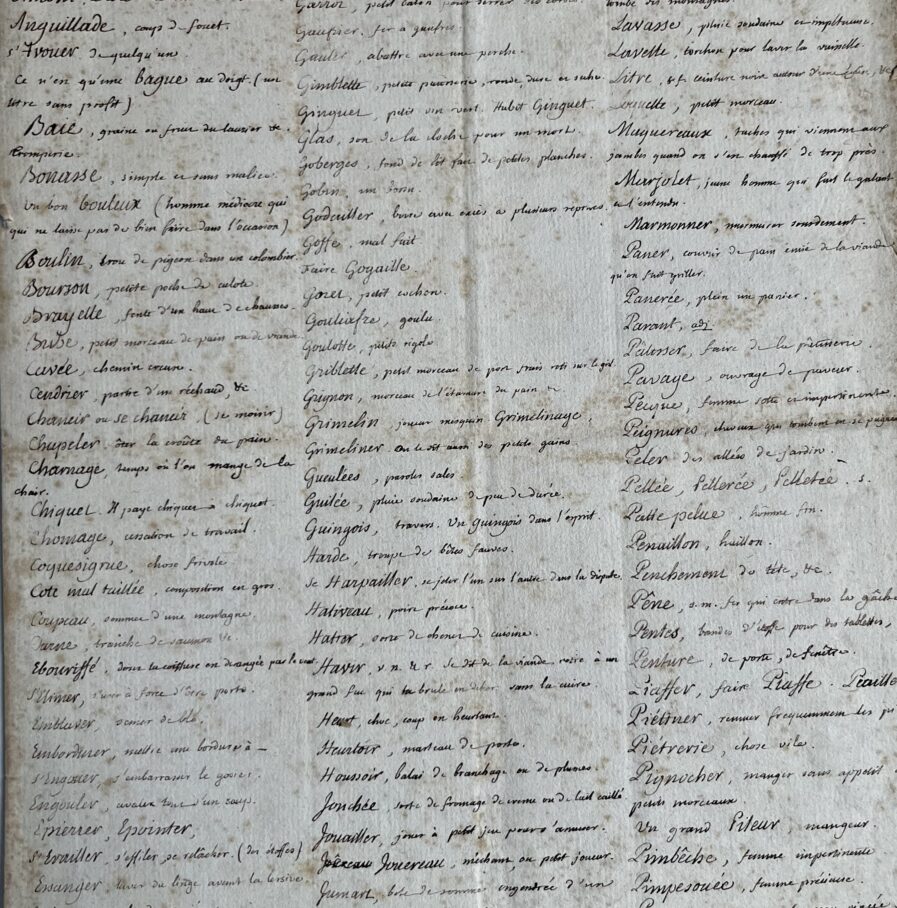 Anguillade, coups de fouet.
s'Avouer de quelqu'un
Ce n'est qu'une bague au doigt. (un
titre sans profit)
Baie, graine ou fruit du laurier &c.
tromperie.
Bonasse, simple et sans malice.
Un bon bouleux (homme médiocre qui
qui ne laisse pas de bien faire dans l'occasion)
Boulin, trou de pigeon dans un colombier.
Bourson, petite poche de culote.
Brayelle, fente d'un haut de chausses.
Bribe, petit morceau de pain ou de viande
Cavée, chemin creux.
Cendrier, partie d'un réchaud, &c
Chancir ou se chancir (se moisir)
Chapeler ôter la croûte du pain.
Charnage, temps où l'on mange de la
chair.
Chiquet. Il paye chiquet à chiquet.
Chomage, cessation de travail.
Coquesigrue, chose frivole
Cote mal taillée, composition en gros.
Coupeau, sommet d'une montagne.
Darne, tranche de saumon &c.
Ebouriffé, dont la coiffure est dérangée par le vent.
s'Elimer, s'user à force d'être porté.
Emblaver, semer de blé.
Embordurer, mettre une bordure à —
s'Engouer, s'embarrasser le gosier.
Engouler, avaler tout d'un coup.
Epierrer, Epointer,
s'Erailler, s'effiler, se relâcher. (des étoffes)
Essanger, laver du linge avant la lessive.
Garrot, petit bâton pour serrer des cordes.
Gaufrier, fer à gaufres.
Gauler abattre avec une perche.
Gimblette, petite patisserie, ronde, dure et sèche.
Ginguet, petit vin vert. Habit Ginguet.
Glas, son de la cloche pour un mort.
Goberges, fond de lit fait de petites planches.
Gobin, un
Godailler, boire avec excès à plusieurs reprises.
Goffe, mal fait
Faire Gogaille.
Goret, petit cochon.
Gouliafre, goulu.
Goulotte, petite rigole
Griblette, petit morceau de porc frais roti sur le gril.
Grignon, morceau de l'entamure du pain &c
Grimelin, joueur mesquin Grimelinage
Grimeliner. On le dit aussi des petits gains.
Gueulées, paroles sales
Guilée, pluie soudaine et peu de durée.
Guingois, travers. Un guingois dans l'esprit.
Harde, troupe de bêtes fauves.
se Harpailler, se jeter l'un sur l'autre dans la dispute.
Hativeau, poire précoce.
Hatier, sorte de chenet de cuisine.
Havir, v n. & r. se dit de la viande rotie à un
grand feu qui la brule en dehors sans la cuire
Heurt, choc, coup en heurtant.
Heurtoir, marteau de porte.
Houssoir, balai de branchage ou de plumes.
Jonchée, sorte de fromage de crême ou de lait caillé
Jouailler, jouer à petit jeu pour s'amuser.
Jouereau, méchant ou petit joueur.
Jumart, bête de somme engendrée d'un
tombe des montagnes.
Lavasse, pluie soudaine et impétueuse.
Lavette, torchon pour laver la vaisselle.
Litre, s.f. ceinture noire autour d'une église, &c
petit morceau.
Maquereaux, taches qui viennent aux
jambes quand on s'en chauffé de trop près.
Marjolet, jeune homme qui fait le galant
et l'entendu.
Marmonner, murmurer sourdement.
Paner, couvrir de pain émié de la viande
qu'on fait griller.
Panerée, plein un panier.
Parant, adj.
Pâtisser, faire de la pâtisserie.
Pavage, ouvrage de paveur.
Pecque, femme sotte et impertinente.
Peignures, cheveux qui tombent en se peignant
Peler des allées de jardin.
Pellée, Pellerée, Pelletée. s.
Patte pelue, homme fin.
Penaillon, haillon.
Penchement de tête, &c.
Pêne, s.m. fer qui entre dans la gâche
Pentes, bandes d'étoffe pour des tablettes,
Penture, de porte, de fenêtre.
Piaffer, faire Piaffe. Piaille
Piétiner, remuer frequemment les pi
Piétrerie, chose vile.
Pignocher, manger sans appetit
petits morceaux
Un grand Piteur, mangeur.
Pimbêche, femme impertinente
Pimpesouée, femme précieuse.